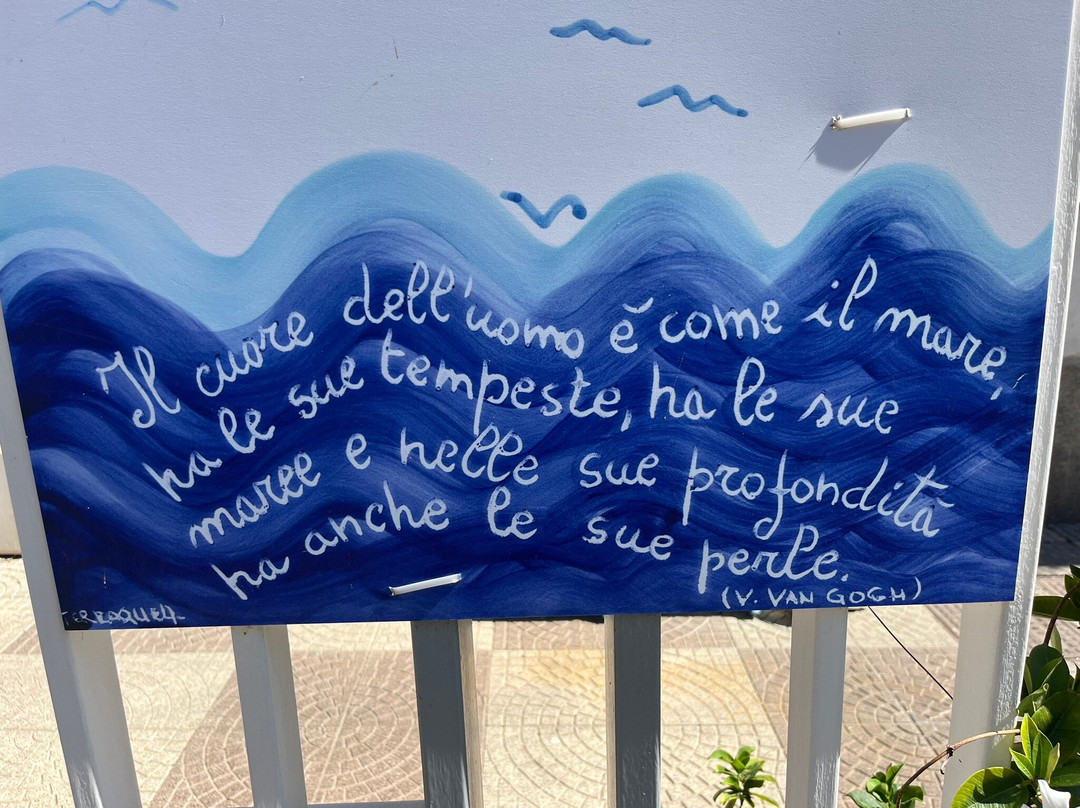 Il cuore dell'uomo è come il mare,
ha le sue tempeste, ha le sue
maree e nelle sue profondità
ha anche le sue perle.
(V. VAN GOGH)